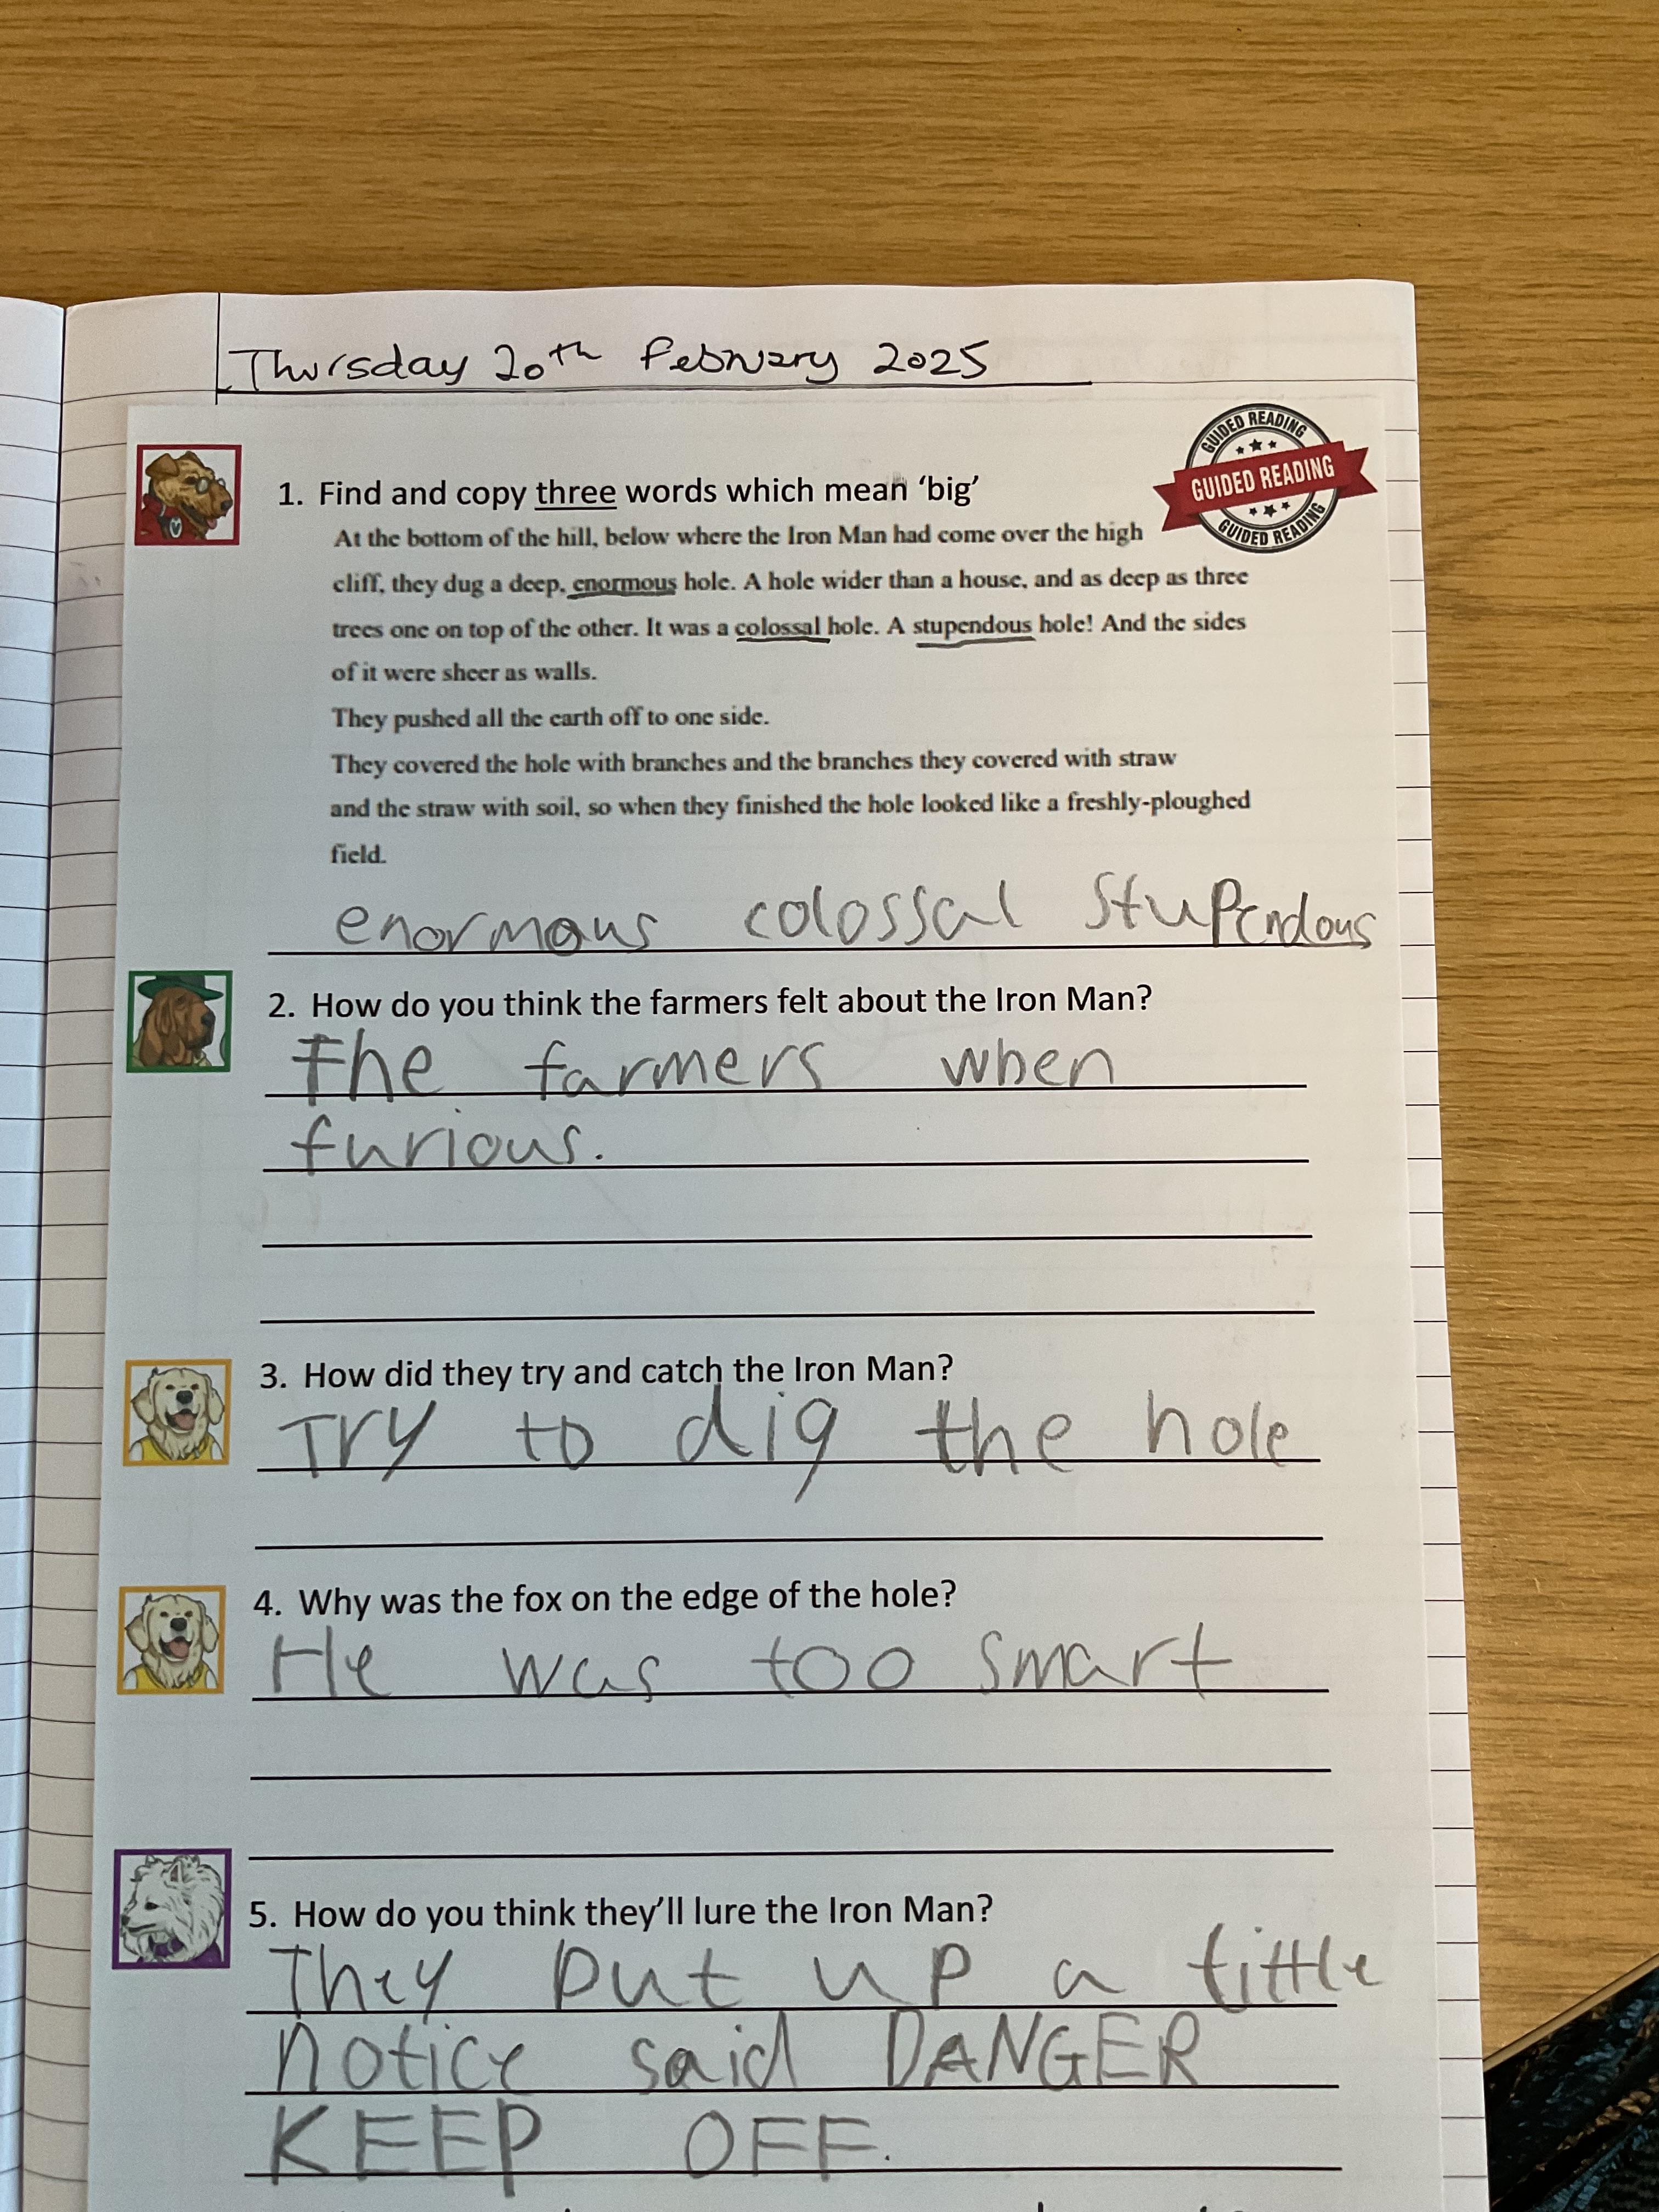 Thursday 20th February 2025
GUIDED READING
GUIDED READING
GUIDED READING
1. Find and copy three words which mean ‘big’
At the bottom of the hill, below where the Iron Man had come over the high
cliff, they dug a deep, enormous hole. A hole wider than a house, and as deep as three
trees one on top of the other. It was a colossal hole. A stupendous hole! And the sides
of it were sheer as walls.
They pushed all the earth off to one side.
They covered the hole with branches and the branches they covered with straw
and the straw with soil, so when they finished the hole looked like a freshly-ploughed
field.
enormous colossal stupendous
2. How do you think the farmers felt about the Iron Man?
The farmers when
furious.
3. How did they try and catch the Iron Man?
Try to dig the hole
4. Why was the fox on the edge of the hole?
He was too smart
5. How do you think they’ll lure the Iron Man?
They put up a tittle
notice said DANGER
KEEP OFF.